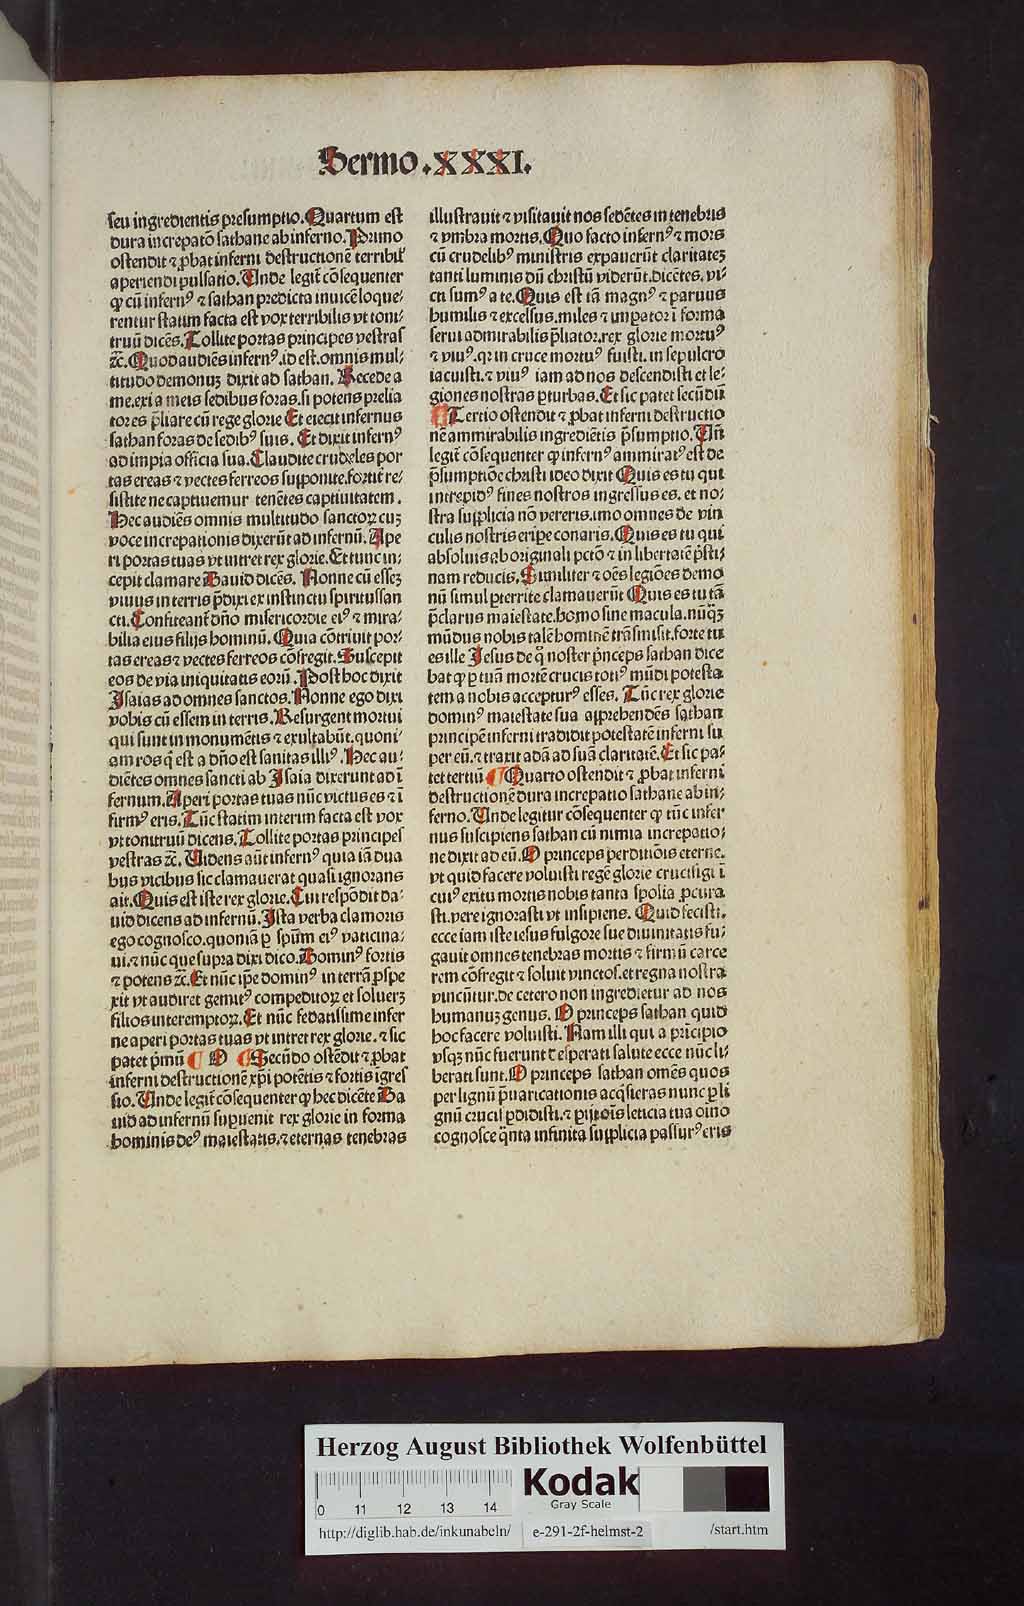 Sermo .XXXI.
seu ingredientis presumptio. Quartum est
dura increpatō sathane ab inferno. Primo
ostendit ⁊ ꝓbat inferni destructionē terribil'
aperiendi pulsatio. Unde legit̄ cōsequenter
ꝙ cū infernꝰ ⁊ sathan predicta inuicē loque⸗
rentur statim facta est vox terribilis vt toni⸗
truū dicēs. Tollite portas principes vestras
ꝛc̄. Quod audiēs infernꝰ. id est. omnis mul⸗
titudo demonuꝫ dixit ad sathan. Recede a
me. exi a meis sedibus foras. si potens prelia
tor es p̄liare cū rege glorie Et eiecit infernus
sathan foras de sedibꝰ suis. Et dixit infernꝰ
ad impia officia sua. Claudite crudeles por
tas ereas ⁊ vectes ferreos supponite. fortit̄ re⸗
sistite ne captiuemur tenētes captiuitatem.
Hec audiēs omnis multitudo sanctoꝝ cuꝫ
voce increpationis dixerūt ad infernū. Ape
ri portas tuas vt intret rex glorie. Et tunc in⸗
cepit clamare Dauid dicēs. Nonne cū esseꝫ
viuus in terris p̄dixi ex instinctu spiritussan
cti. Confiteant̄ dn̄o misericordie eiꝰ ⁊ mira⸗
bilia eius filijs hominū. Quia cōtriuit por⸗
tas ereas ⁊ vectes ferreos cōfregit. Suscepit
eos de via iniquitatis eorū. Post hoc dixit
Isaias ad omnes sanctos. Nonne ego dixi
vobis cū essem in terris. Resurgent mortui
qui sunt in monumētis ⁊ exultabūt. quoni⸗
am ros q̄ est a dn̄o est sanitas illiꝰ. Hec au⸗
diētes omnes sancti ab Isaia dixerunt ad ī
fernum. Aperi portas tuas nūc victus es ⁊ ī
firmꝰ eris. Tūc statim interim facta est vox
vt tonitruū dicens. Tollite portas principes
vestras ꝛc̄. Uidens aūt infernꝰ quia iā dua
bus vicibus sic clamauerat quasi ignorans
ait. Quis est iste rex glorie. Cui respōdit da⸗
uid dicens ad infernū. Ista verba clamoris
ego cognosco. quoniā ꝑ spūm eiꝰ vaticina⸗
ui. ⁊ nūc que supra dixi dico. Dominꝰ fortis
⁊ potens ꝛc̄. Et nūc ip̄e dominꝰ in terrā ꝓspe
xit vt audiret gemitꝰ compeditoꝝ et solueꝝ
filios interemptoꝝ. Et nūc fedatissime infer
ne aperi portas tuas vt intret rex glorie. ⁊ sic
patet p̄mū ¶ O ¶ Secūdo ostēdit ⁊ ꝓbat
inferni destructionē xp̄i potētis ⁊ fortis īgres
sio. Unde legit̄ cōsequenter ꝙ hec dicēte Da
uid ad infernū supuenit rex glorie in forma
hominis deꝰ maiestatis. ⁊ eternas tenebras
illustrauit ⁊ visitauit nos sedētes in tenebris
⁊ vmbra mortis. Quo facto infernꝰ ⁊ mors
cū crudelibꝰ ministris expauerūt claritateꝫ
tanti luminis dū christū viderūt. dicētes. vi⸗
cti sumꝰ a te. Quis est tā magnꝰ ⁊ paruus
humilis ⁊ excelsus. miles ⁊ imperator ī forma
serui admirabilis p̄liator. rex glorie mortuꝰ
⁊ viuꝰ. qr in cruce mortuꝰ fuisti. in sepulcro
iacuisti. ⁊ viuꝰ iam ad nos descendisti et le⸗
giones nostras ꝑturbas. Et sic patet secūdū
¶ Tertio ostendit ⁊ ꝓbat inferni destructio
nē ammirabilis ingrediētis p̄sumptio. Un̄
legit̄ cōsequenter ꝙ infernꝰ ammiratꝰ est de
p̄sumptiōe christi ideo dixit Quis es tu qui
intrepidꝰ fines nostros ingressus es. et no⸗
stra supplicia nō vereris. imo omnes de vin
culis nostris eripe conaris. Quis es tu qui
absoluis ab originali pctō ⁊ in libertatē p̄sti⸗
nam reducis. Similiter ⁊ oēs legiōes demo
nū simul ꝑterrite clamauerūt Quis es tu tā
p̄clarus maiestate. homo sine macula. nūqꝫ
mūdus nobis talē hominē trāsmisit. forte tu
es ille Jesus de q̊ noster p̄nceps sathan dice
bat ꝙ ꝑ tuā morte crucis totiꝰ mūdi potesta
tem a nobis accepturꝰ esses. Tūc rex glorie
dominꝰ maiestate sua apprehendēs sathan
principē inferni tradidit potestatē inferni su
per eū. ⁊ traxit adā ad suā claritatē. Et sic pa⸗
tet tertiū ¶ Quarto ostendit ⁊ ꝓbat inferni
destructionē dura increpatio sathane ab in⸗
ferno. Unde legitur cōsequenter ꝙ tūc infer
nus suscipiens sathan cū nimia increpatio⸗
ne dixit ad eū. O princeps perditiōis eterne.
vt quid facere voluisti regē glorie crucifigi ī
cuiꝰ exitu mortis nobis tanta spolia ꝓcura
sti. vere ignorasti vt insipiens. Quid fecisti.
ecce iam iste iesus fulgore sue diuinitatis fu⸗
gauit omnes tenebras mortis ⁊ firmū carce
rem cōfregit ⁊ soluit vinctos. et regna nostra
vincūtur. de cetero non ingredietur ad nos
humanuꝫ genus. O princeps sathan quid
hoc facere voluisti. Nam illi qui a prīcipio
vsqꝫ nūc fuerunt desperati salute ecce nūc li⸗
berati sunt. O princeps sathan omēs quos
per lignū p̄uaricationis acq̄sieras nunc ꝑ li
gnū crucis ꝑdidisti. ⁊ ꝑijt oīs leticia tua oīno
cognosce q̄nta infinita supplicia passurꝰ eris
Herzog August Bibliothek Wolfenbüttel
0 11 12 13 14
Kodak
Gray Scale
http://diglib.hab.de/inkunabeln/ e-291-2f-helmst-2 /start.htm